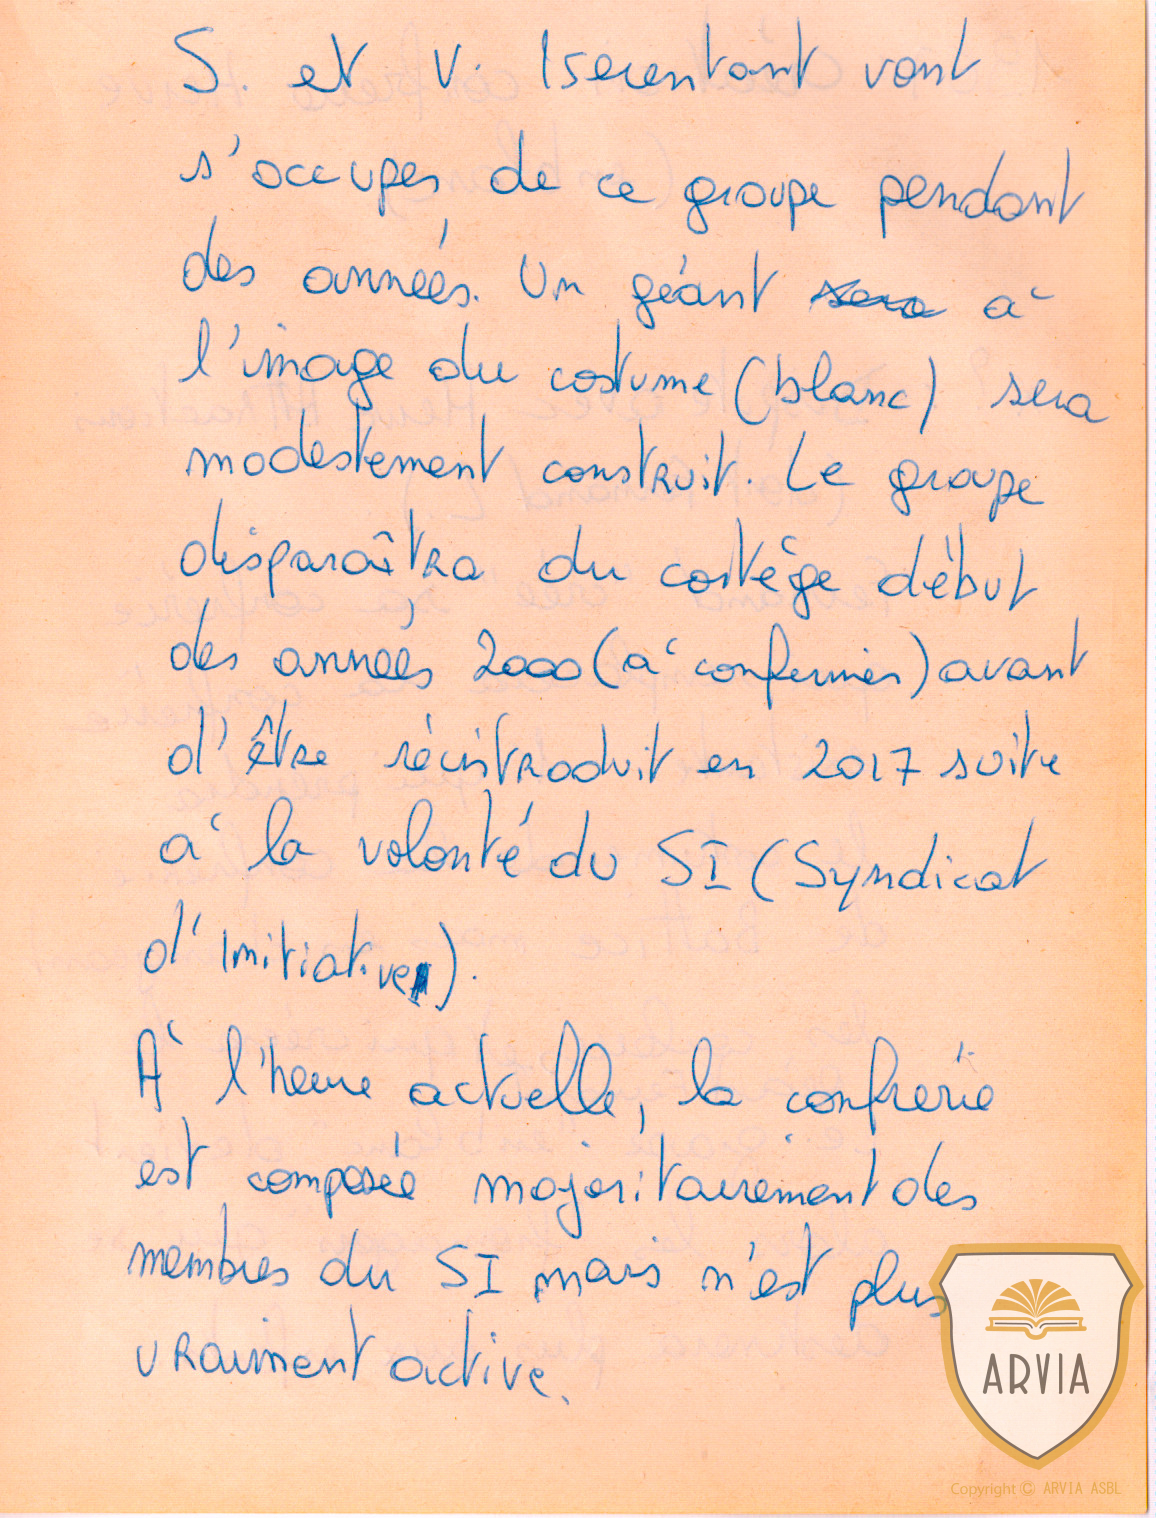 S. et V. Iserentant vont
s'occuper de ce groupe pendant
des années. Un géant sera à
l'image du costume (blanc) sera
modestement construit. Le groupe
disparaîtra du cortège début
des années 2000 (à confirmer) avant
d'être réintroduit en 2017 suite
à la volonté du SI (Syndicat
d'Initiative).
À l'heure actuelle, la confrérie
est composée majoritairement des
membres du SI mais n'est plus
vraiment active.
ARVIA
Copyright © ARVIA ASBL